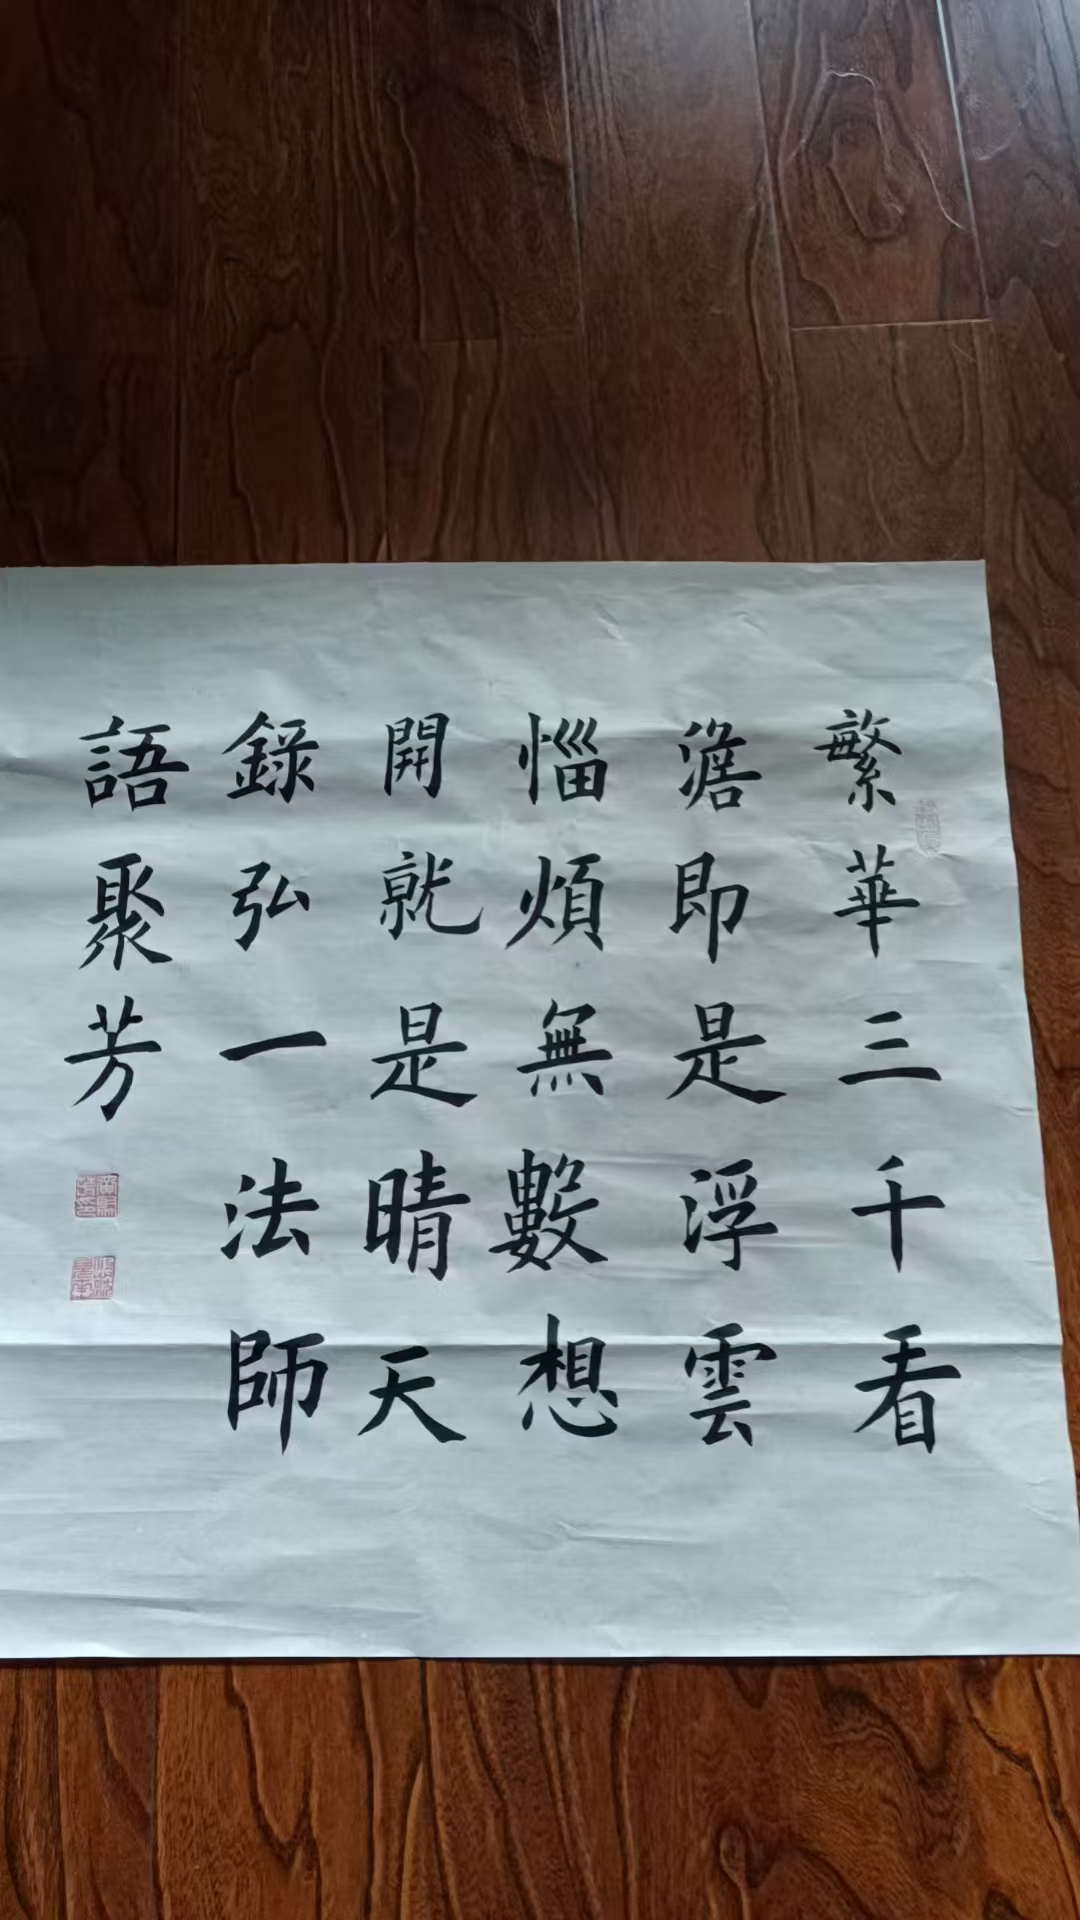 繁華三千看
澹即是浮雲
惱煩無數想
開就是晴天
錄弘一法師
語聚芳